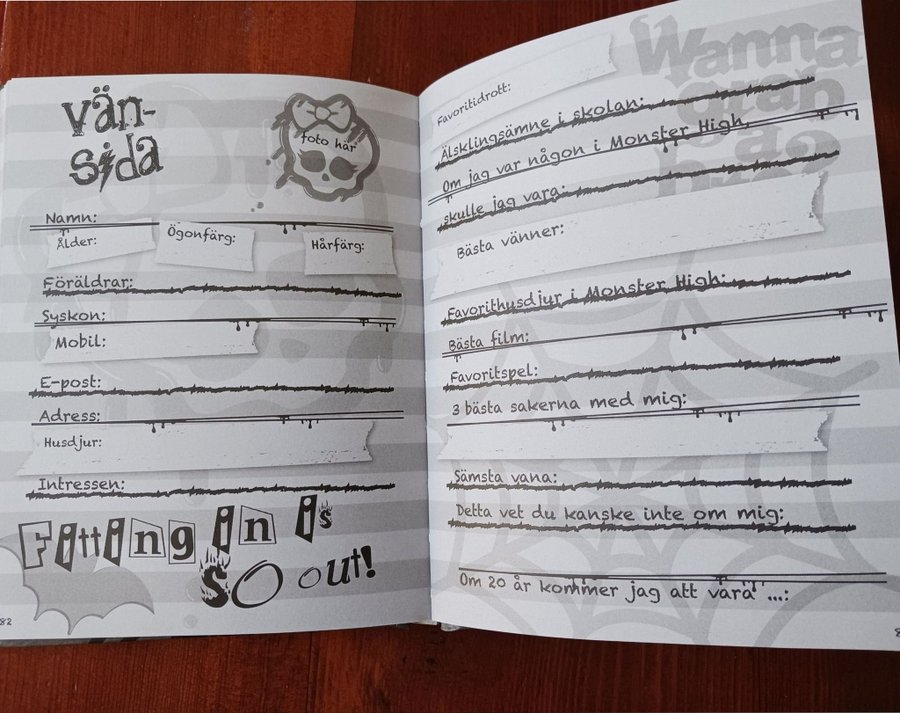 vän-
sida
foto här
Namn:
Ålder:
Ögonfärg:
Hårfärg:
Föräldrar:
Syskon:
Mobil:
E-post:
Adress:
Husdjur:
Intressen:
Fitting in is
so out!
82
Wanna
grab
a
Favoritidrott:
Älsklingsämne i skolan:
Om jag var någon i Monster High,
skulle jag vara:
Bästa vänner:
Favorithusdjur i Monster High:
Bästa film:
Favoritspel:
3 bästa sakerna med mig:
Sämsta vana:
Detta vet du kanske inte om mig:
Om 20 år kommer jag att vara ...: